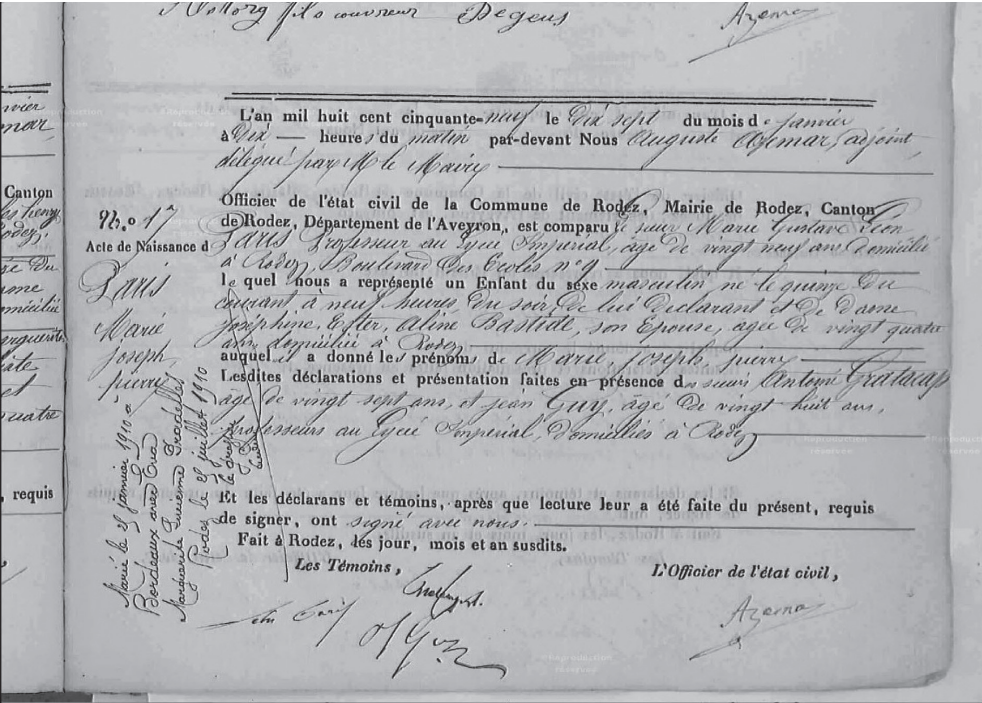 fils couvreur Degens
Azemar
L'an mil huit cent cinquante-neuf le dix sept du mois de janvier
à dix heures du matin par-devant Nous Auguste Azemar, adjoint,
délégué par M. le Maire
Officier de l'état civil de la Commune de Rodez, Mairie de Rodez, Canton
de Rodez, Département de l'Aveyron, est comparu le sieur Marie Gustave Léon
Paris Professeur au Lycée Impérial, âgé de vingt neuf ans domicilié
à Rodez, Boulevard des Ecoles n°
lequel nous a représenté un Enfant du sexe masculin né le quinze du
courant à neuf heures du soir, de lui déclarant et de dame
Joséphine, Ester, Aline Bastide, son épouse, âgée de vingt quatre
ans domiciliée à Rodez
auquel il a donné les prénoms de Marie, Joseph, pierre
Lesdites déclarations et présentation faites en présence des sieurs Antoine Gratacap
âgé de vingt sept ans, et jean Guy, âgé de vingt huit ans,
professeurs au Lycée Impérial, domiciliés à Rodez
Et les déclarans et témoins, après que lecture leur a été faite du présent, requis
de signer, ont signé avec nous.
Fait à Rodez, les jour, mois et an susdits.
Les Témoins,
L'Officier de l'état civil,
Azemar
N.o 17
Acte de Naissance d
Paris
Marie
Joseph
pierre
Marié le 25 janvier 1910 à
Bordeaux avec
Marguerite Lucienne
Rodez le 28 juillet 1910
le greffier
Canton
Rodez,
domicilié
quatre
, requis